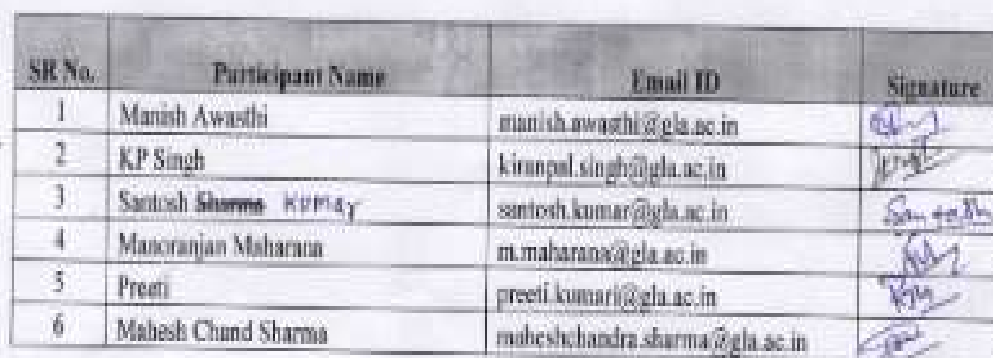 SR No. Participant Name Email ID Signature
1 Manish Awasthi manish.awasthi@gla.ac.in
2 KP Singh kiranpal.singh@gla.ac.in
3 Santosh Sharma Kumar santosh.kumar@gla.ac.in Santosh
4 Manoranjan Maharana m.maharana@gla.ac.in
5 Preeti preeti.kumari@gla.ac.in
6 Mahesh Chand Sharma maheshchandra.sharma@gla.ac.in